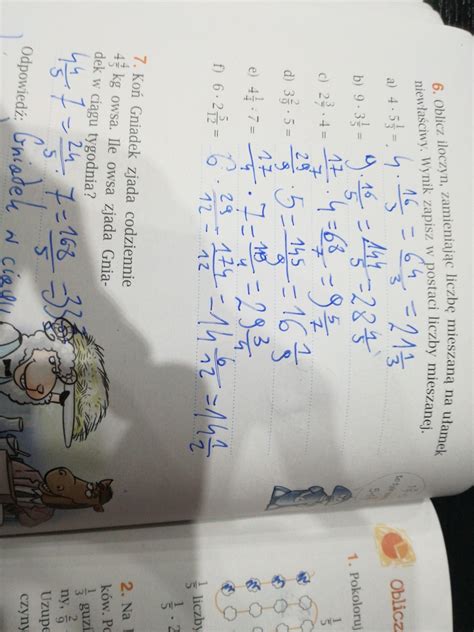 6. Oblicz iloczyn, zamieniając liczbę mieszaną na ułamek
niewłaściwy. Wynik zapisz w postaci liczby mieszanej.
a) 4 · 5 1/3 = 4 · 16/3 = 64/3 = 21 1/3
b) 9 · 3 1/5 = 9 · 16/5 = 144/5 = 28 4/5
c) 2 3/7 · 4 = 17/7 · 4 = 68/7 = 9 5/7
d) 3 2/9 · 5 = 29/9 · 5 = 145/9 = 16 1/9
e) 4 1/4 · 7 = 17/4 · 7 = 119/4 = 29 3/4
f) 6 · 2 5/12 = 6 · 29/12 = 174/12 = 14 6/12 = 14 1/2
7. Koń Gniadek zjada codziennie
4 4/5 kg owsa. Ile owsa zjada Gnia-
dek w ciągu tygodnia?
4 4/5 · 7 = 24/5 · 7 = 168/5 = 33
Odpowiedź: Gniadek w
Oblicz
1. Pokoloruj
1/5 liczby
1/5 · 2
2. Na
ków. Po
1/3 guzi
ny, 2/9
Uzupe
czyny